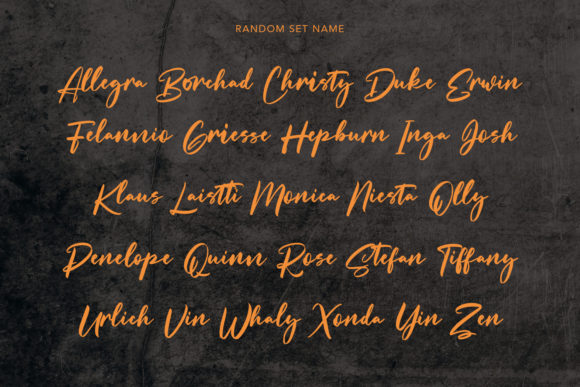 RANDOM SET NAME
Allegra Borchad Christy Duke Erwin
Felannio Griesse Hepburn Inga Josh
Klaus Laistti Monica Niesta Olly
Penelope Quinn Rose Stefan Tiffany
Urlich Vin Whaly Xonda Yin Zen